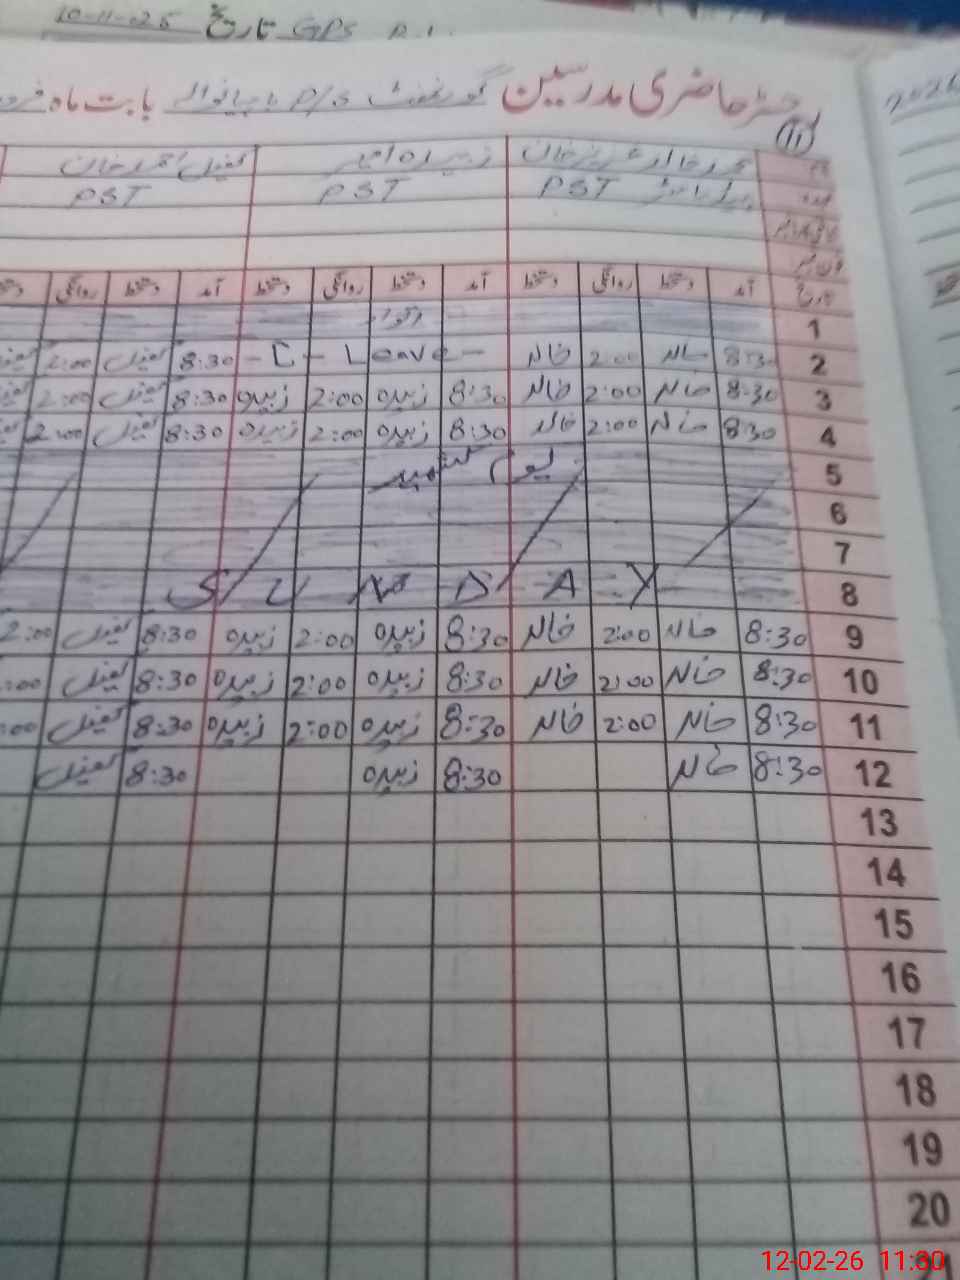 10-11-25 تاریخ GPS
رجسٹر حاضری مدرسین گورنمنٹ P/S بابت ماہ
2026
11
نام خان
عہدہ PST PST PST
تاریخ آمد دستخط روانگی دستخط آمد دستخط روانگی دستخط آمد دستخط روانگی
1 اتوار
2 8:30 خالد 2:00 خالد - C - Leave - 8:30 کفیل 2:00
3 8:30 خالد 2:00 خالد 8:30 زبیدہ 2:00 زبیدہ 8:30 کفیل 2:00
4 8:30 خالد 2:00 خالد 8:30 زبیدہ 2:00 زبیدہ 8:30 کفیل 2:00
5 یوم کشمیر
6
7
8 S U N D A Y
9 8:30 خالد 2:00 خالد 8:30 زبیدہ 2:00 زبیدہ 8:30 کفیل 2:00
10 8:30 خالد 2:00 خالد 8:30 زبیدہ 2:00 زبیدہ 8:30 کفیل :00
11 8:30 خالد 2:00 خالد 8:30 زبیدہ 2:00 زبیدہ 8:30 کفیل :00
12 8:30 خالد 8:30 زبیدہ 8:30 کفیل
13
14
15
16
17
18
19
20
12-02-26 11:30